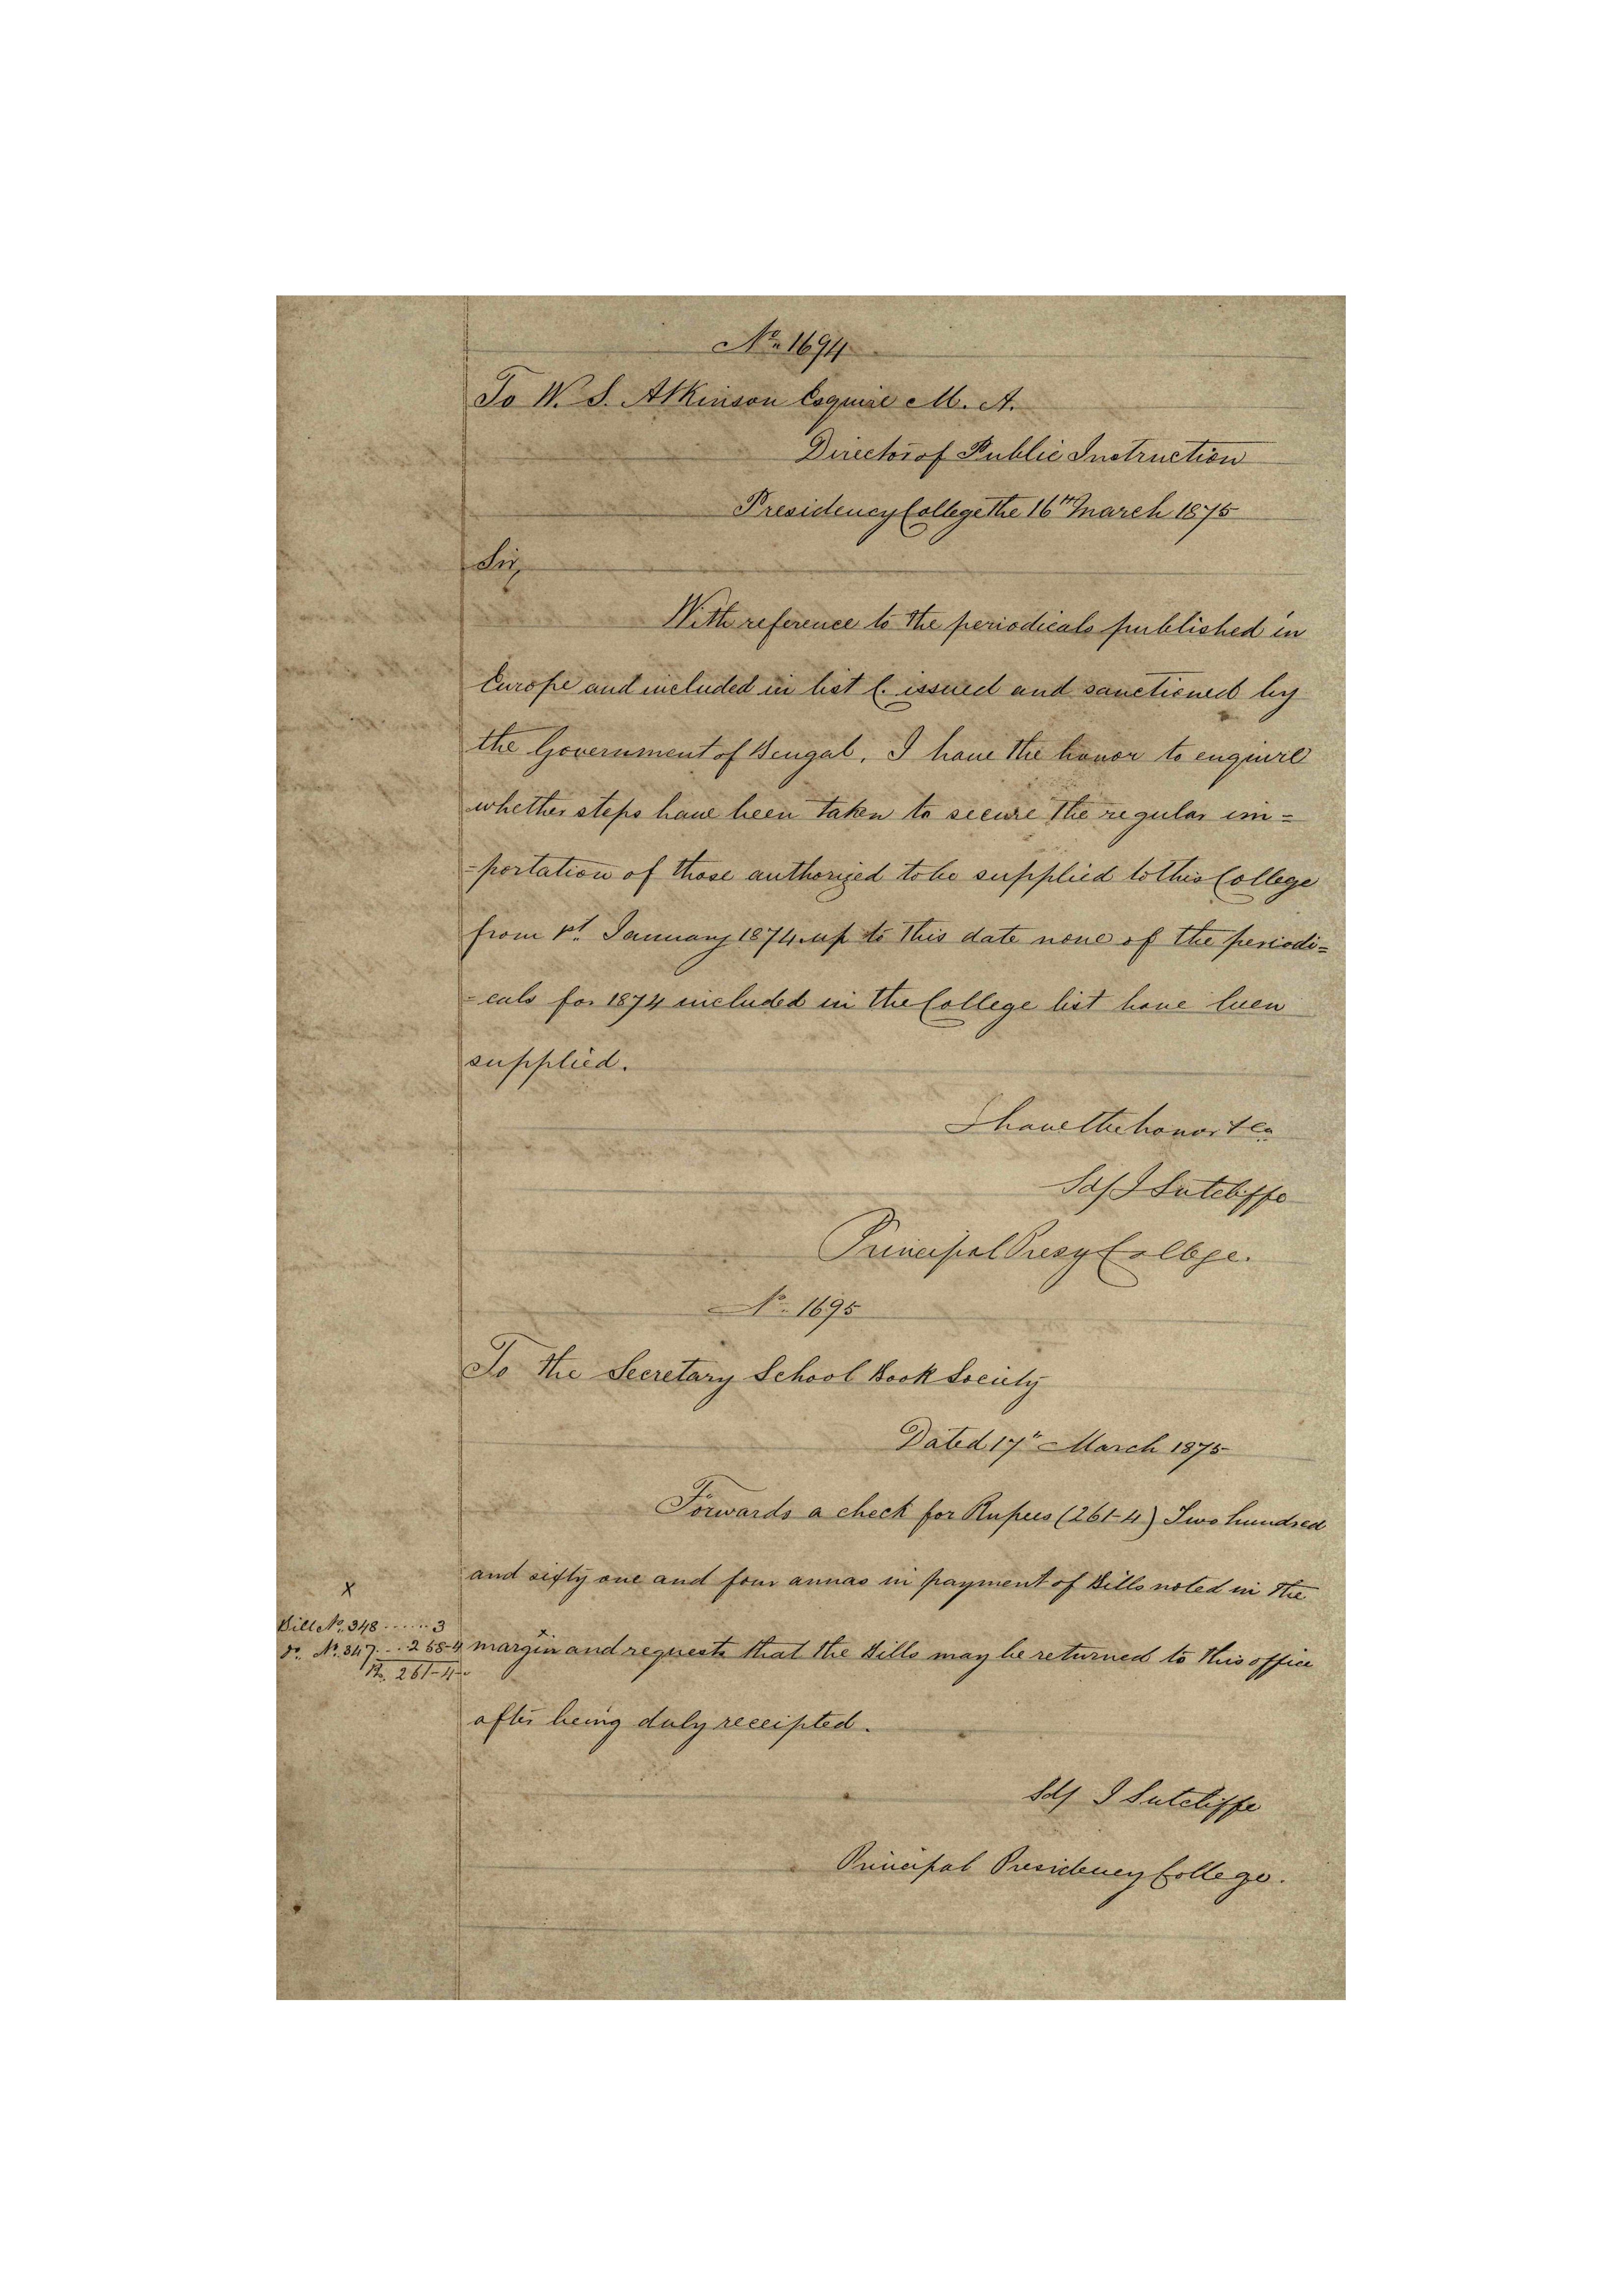 No. 1694
To W. S. Atkinson Esquire M. A.
Director of Public Instruction
Presidency College The 16th March 1875
Sir,
With reference to the periodicals published in
Europe and included in list C. issued and sanctioned by
the Government of Bengal, I have the honor to enquire
whether steps have been taken to secure the regular im=
=portation of those authorized to be supplied to this College
from 1st. January 1874. up to this date none of the periodi=
=cals for 1874 included in the College list have been
supplied.
I have the honor &ca
Sd/ J Sutcliffe
Principal Presy College.
No. 1695
To the Secretary School Book Society
Dated 17th March 1875
Forwards a check for Rupees (261-4) Two hundred
and sixty one and four annas in payment of Bills noted in the
x
Bill No. 348 ...... 3
Do. No. 347 ... 258-4
Rs. 261-4-
margin x and requests that the Bills may be returned to this office
after being duly receipted.
Sd/ J Sutcliffe
Principal Presidency College.